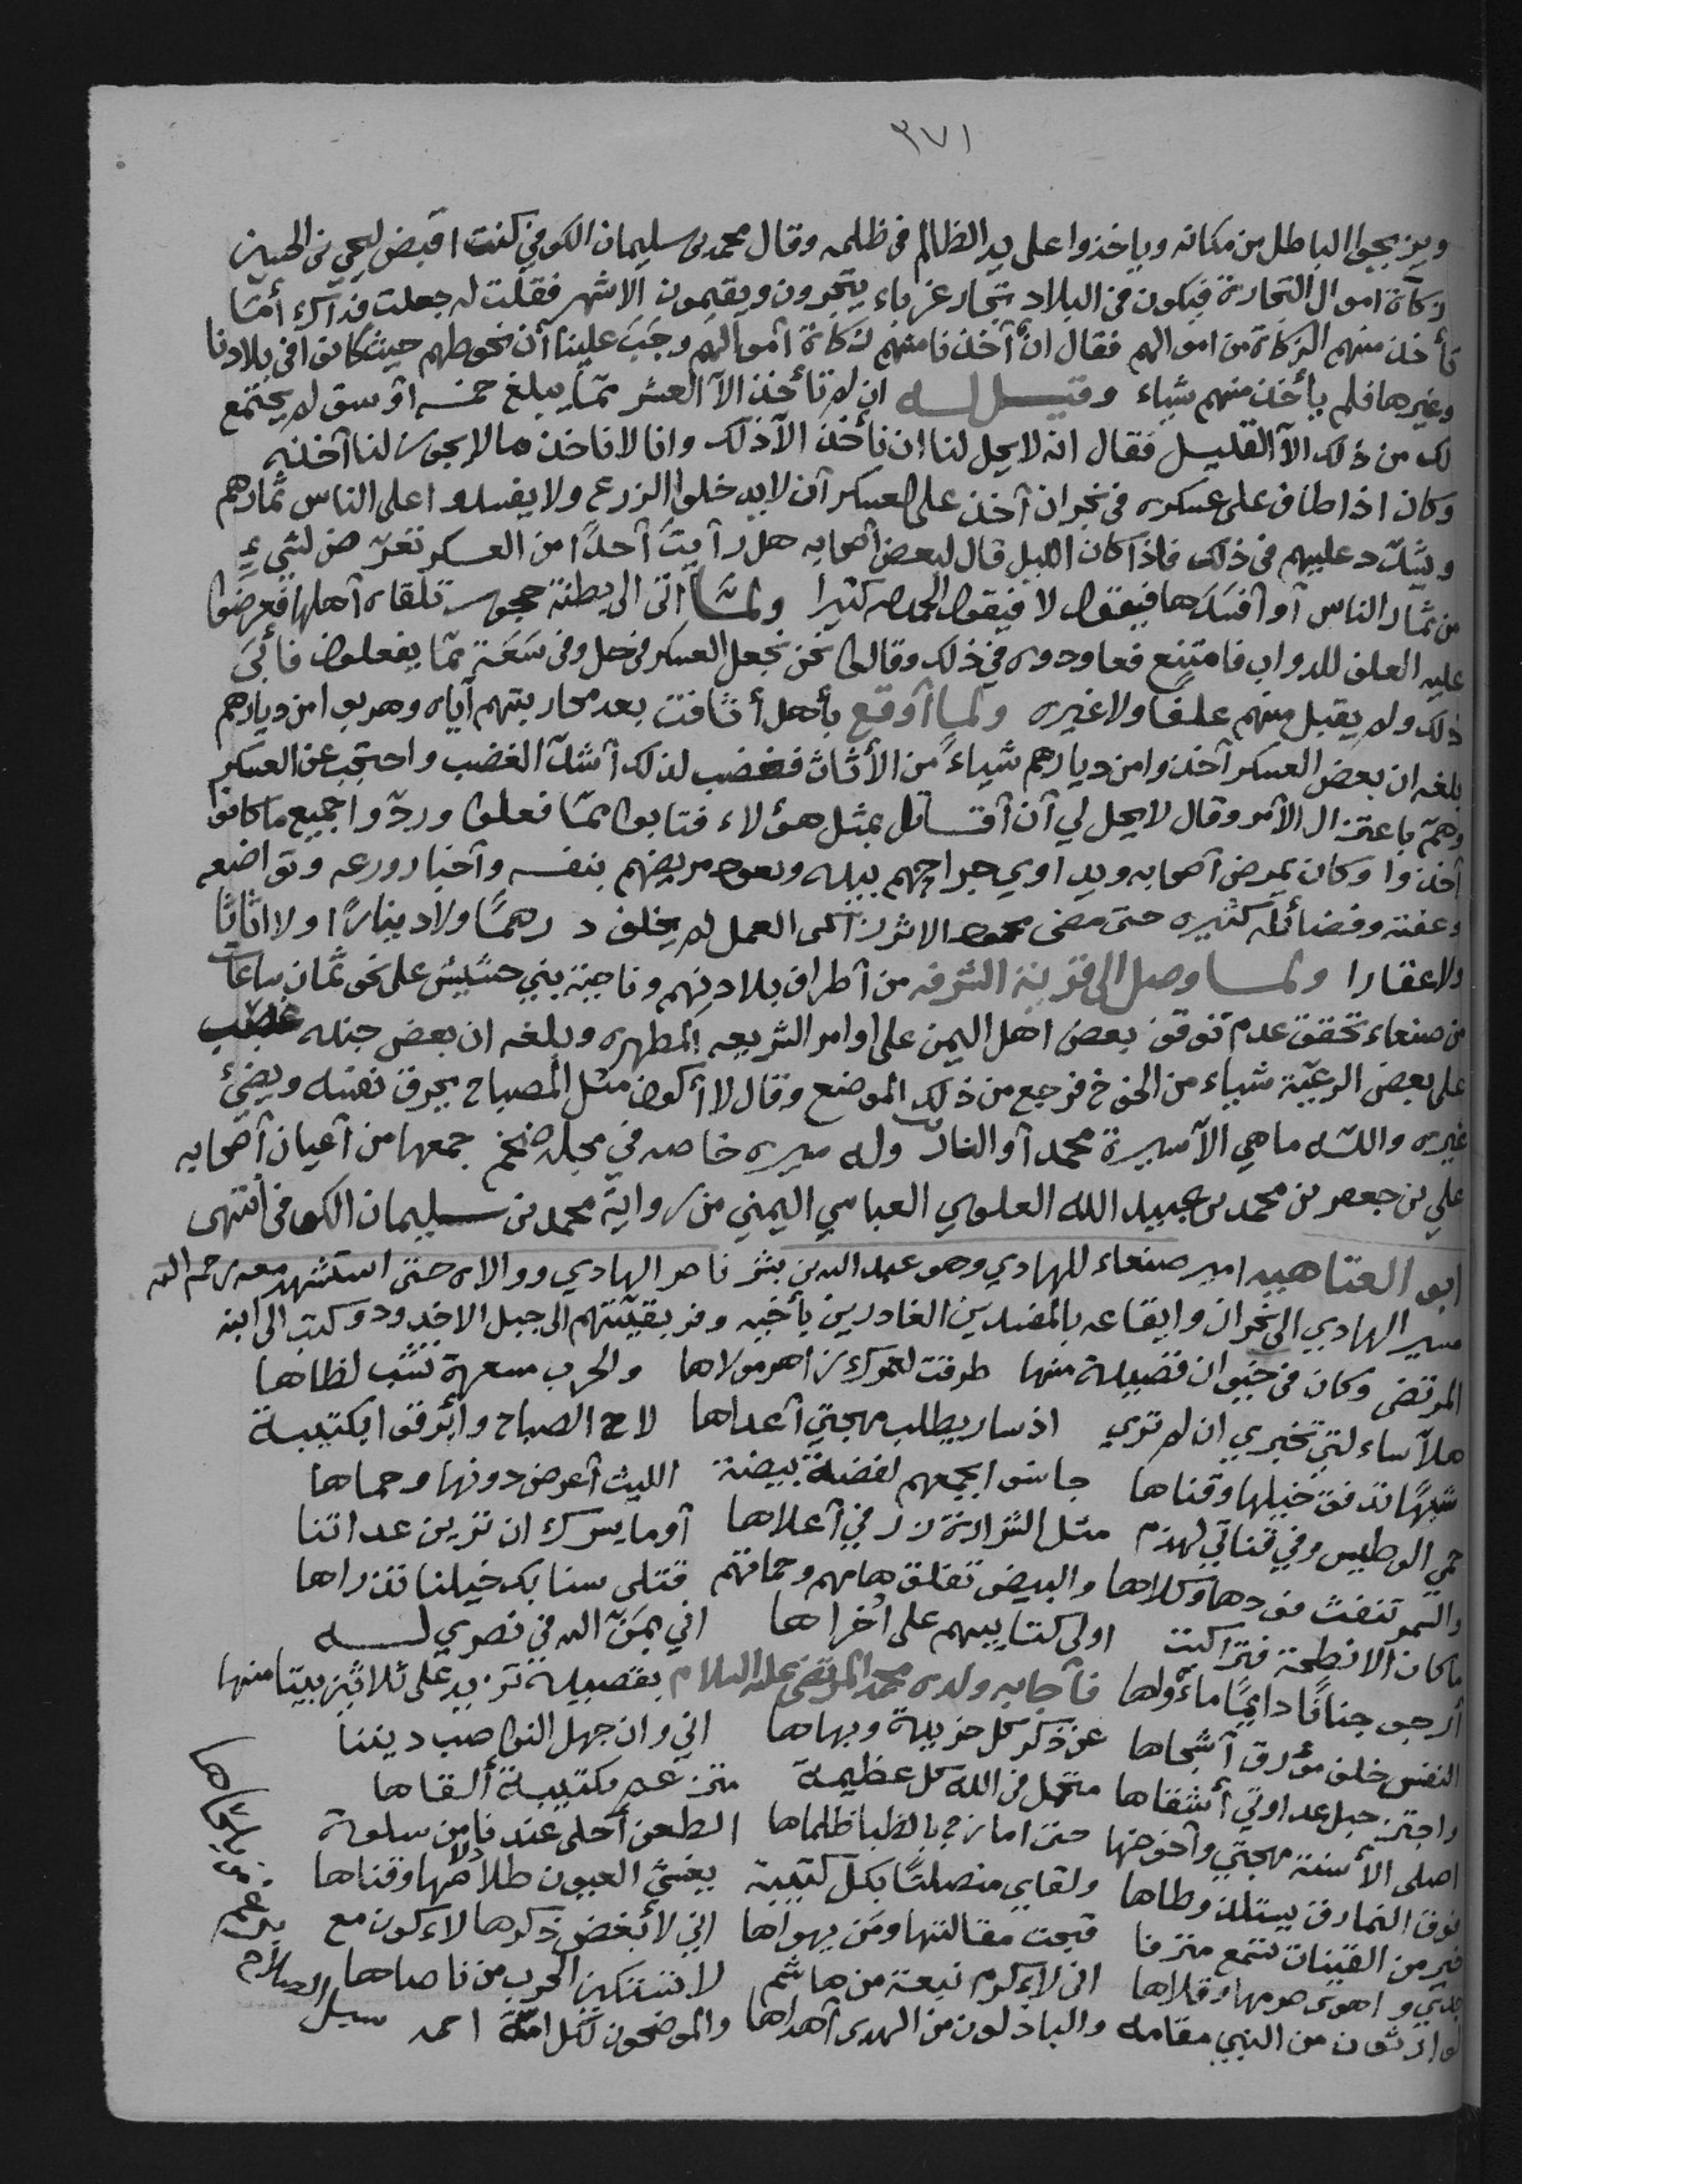 ٣٧١
ويزيحوا الباطل من مكانه وياخذوا على يد الظالم فى ظلمه وقال محمد بن سليمان الكوفي كنت اقبض ليحيى بن الحسين
زكاة اموال التجارة فيكون فى البلاد تجار غرباء يتجرون ويقيمون الاشهر فقلت له جعلت فداك أمّا
نأخذ منهم الزكاة من اموالهم فقال ان أخذنا منهم زكاة أموالهم وجَبَ علينا أن نحوطهم حيث كانوا فى بلادنا
وغيرها فلم يأخذ منهم شياء وقيل له ان لم تأخذ الاّ العشر ممّا يبلغ خمسه أوسق لم يجتمع
لك من ذلك الاّ القليل فقال انه لا يحل لنا ان نأخذ الاّ ذلك وانا لا ناخذ مالا يجوز لنا أخذه
وكان اذا طاف على عسكره فى نجران أخذ على العسكر أن لا يدخلوا الزرع ولا يفسدوا على الناس ثمارهم
ويشدّد عليهم فى ذلك فاذا كان الليل قال لبعض أصحابه هل رأيتَ أحدًا من العسكر تعرّض لشيءٍ
من ثمار الناس أو أفسَدَها فيقول لا فيقول الحمد لله كثيرا ولمّا اتى الى بطنة حجور تلقاه أهلها فعرضوا
عليه العلف للدواب فامتنع فعاودوه في ذلك وقالوا نحن نجعل العسكر فى حل وفى سَعَة ممّا يفعلون فأبَى
ذلك ولم يقبل منهم علفًا ولا غيره ولمّا أوقع بأهل أثافت بعد محاربتهم أياه وهربوا من ديارهم
بلغه ان بعض العسكر أخذوا من ديارهم شياءً من الأثاث فغضب لذلك أشدّ الغضب واحتجب عن العسكر
وهمّ باعتزال الأمر وقال لا يحل لي أن أقاتل بمثل هؤلاء فتابوا ممّا فعلوا وردّوا جميع ما كانوا
أخذوا وكان يمرض أصحابه ويداوي جراحهم بيده ويعود مريضهم بنفسه وأخبار ورعه وتواضعه
وعفته وفضائله كثيره حتى مضى محمود الاثر زاكى العمل لم يخلف درهمًا ولا دينارًا ولا اثاثًا
ولا عقارا ولمّا وصل الى قرية الشرفه من أطراف بلاد نهم وناحية بني حشيش على نحو ثمان ساعات
من صنعاء تحقق عدم توقف بعض اهل اليمن على أوامر الشريعه المطهره وبلغه ان بعض جنده غصب
على بعض الرعيّة شياء من الخوخ فرجع من ذلك الموضع وقال لا أكون مثل المصباح يحرق نفسه ويضئ
غيره واللّه ما هي الاّ سيرة محمد أو النار وله سيره خاصه في مجلد ضخم جمعها من أعيان أصحابه
علي بن جعفر بن محمد بن عبيد الله العلوي العباسي اليمني من رواية محمد بن سليمان الكوفى انتهى
ابو العتاهيه امير صنعاء للهادي وهو عبد الله بن بشر ناصر الهادي ووالاه حتى استشهد معه رحمه الله
سير الهادي الى نجران وايقاعه بالمفسدين الغادرين بأخيه وفر بقيّتهم الى جبل الاخدود وكتب الى ابنه
المرتضى وكان فى خيوان قصيدة منها طرقت لعمرك زاهر مولاها والحرب مسعرة تشب لظاها
هلاّ ساءلتي تخبري ان لم تري اذ سار يطلب مهجتي أعداها لاح الصباح وأبرقوا بكتيبة
شهبًا تدفق خيلها وقناها جاشوا بجمعهم لفضة بيضة الليث أعرض دونها وحماها
حمي الوطيس وفي قناتي لهذم مثل الشرارة زر في أعلاها أوما يسرك ان تزين عداتنا
والسّمر تنفث فودها وكلاها والبيض تفلق هامهم وحماتهم قتلى سنابك خيلنا تذراها
ما كان الا نطحة فتراكبت اولى كتايبهم على أخراها اني بمَنّ الله في نصري له
أرجو جنانًا دايمًا مأولها فأجابه ولده محمد المرتضى عليه السلام بقصيدة تزيد على ثلاثين بيتا منها
النفس خلف مؤرق أشجاها عن ذكر كل خريدة وبهاها اني وان جهل النواصب ديننا
واجتز حبل عداوتي أشقاها متحمل في الله كل عظيمة متزعم بكتيبة ألقاها
اصلى الأسنة مهجتي وأخوضها حتى اماز جي بالظبا ظلماها الطعن أحلى عندنا من سلوة
فوق النمارق يستلذ وطاها ولقاي منصلتًا بكل كتيبة يغشي العيون طلامها وقناها
خير من القينات تتمع مترفا قبحت مقالتها ومن يهواها اني لأبغض ذكرها لاءكون مع
جدي واهوى صرمها وقلاها انى لاءكرم نبعة من هاشم لا تستكين الحرب من ناصاها
لوارثون من النبي مقامه والباذلون من الهدى أهداها والموضحون لكل امّة احمد سبل السلام